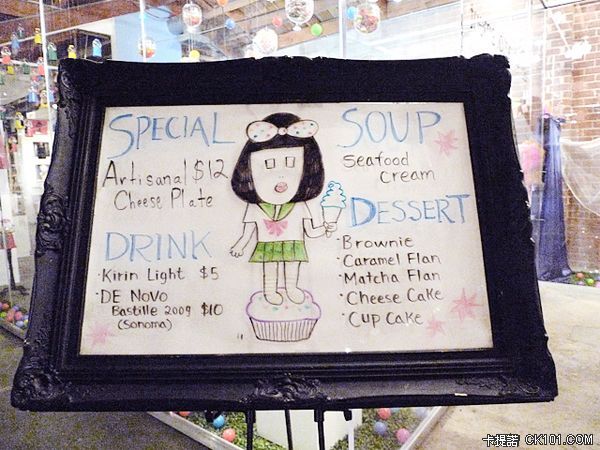 SPECIAL
Artisanal $12
Cheese Plate
DRINK
·Kirin Light $5
·DE NOVO
Bastille 2009 $10
(Sonoma)
SOUP
Seafood
cream
DESSERT
·Brownie
·Caramel Flan
·Matcha Flan
·Cheese Cake
·Cup Cake
卡提諾 CK101.COM